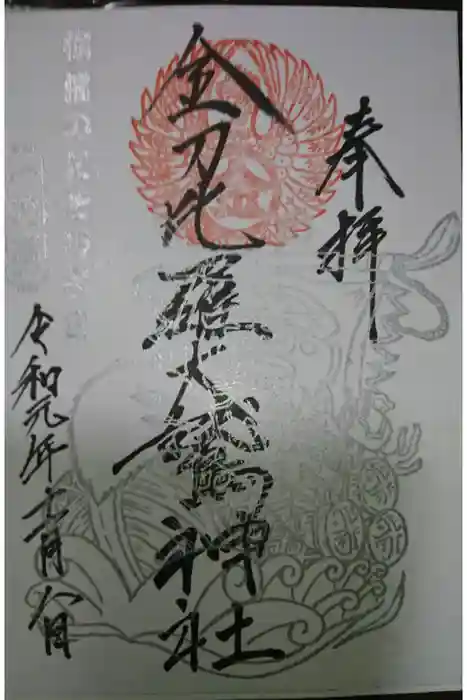 奉拝
金刀比羅大鷲神社
令和元年十一月八日